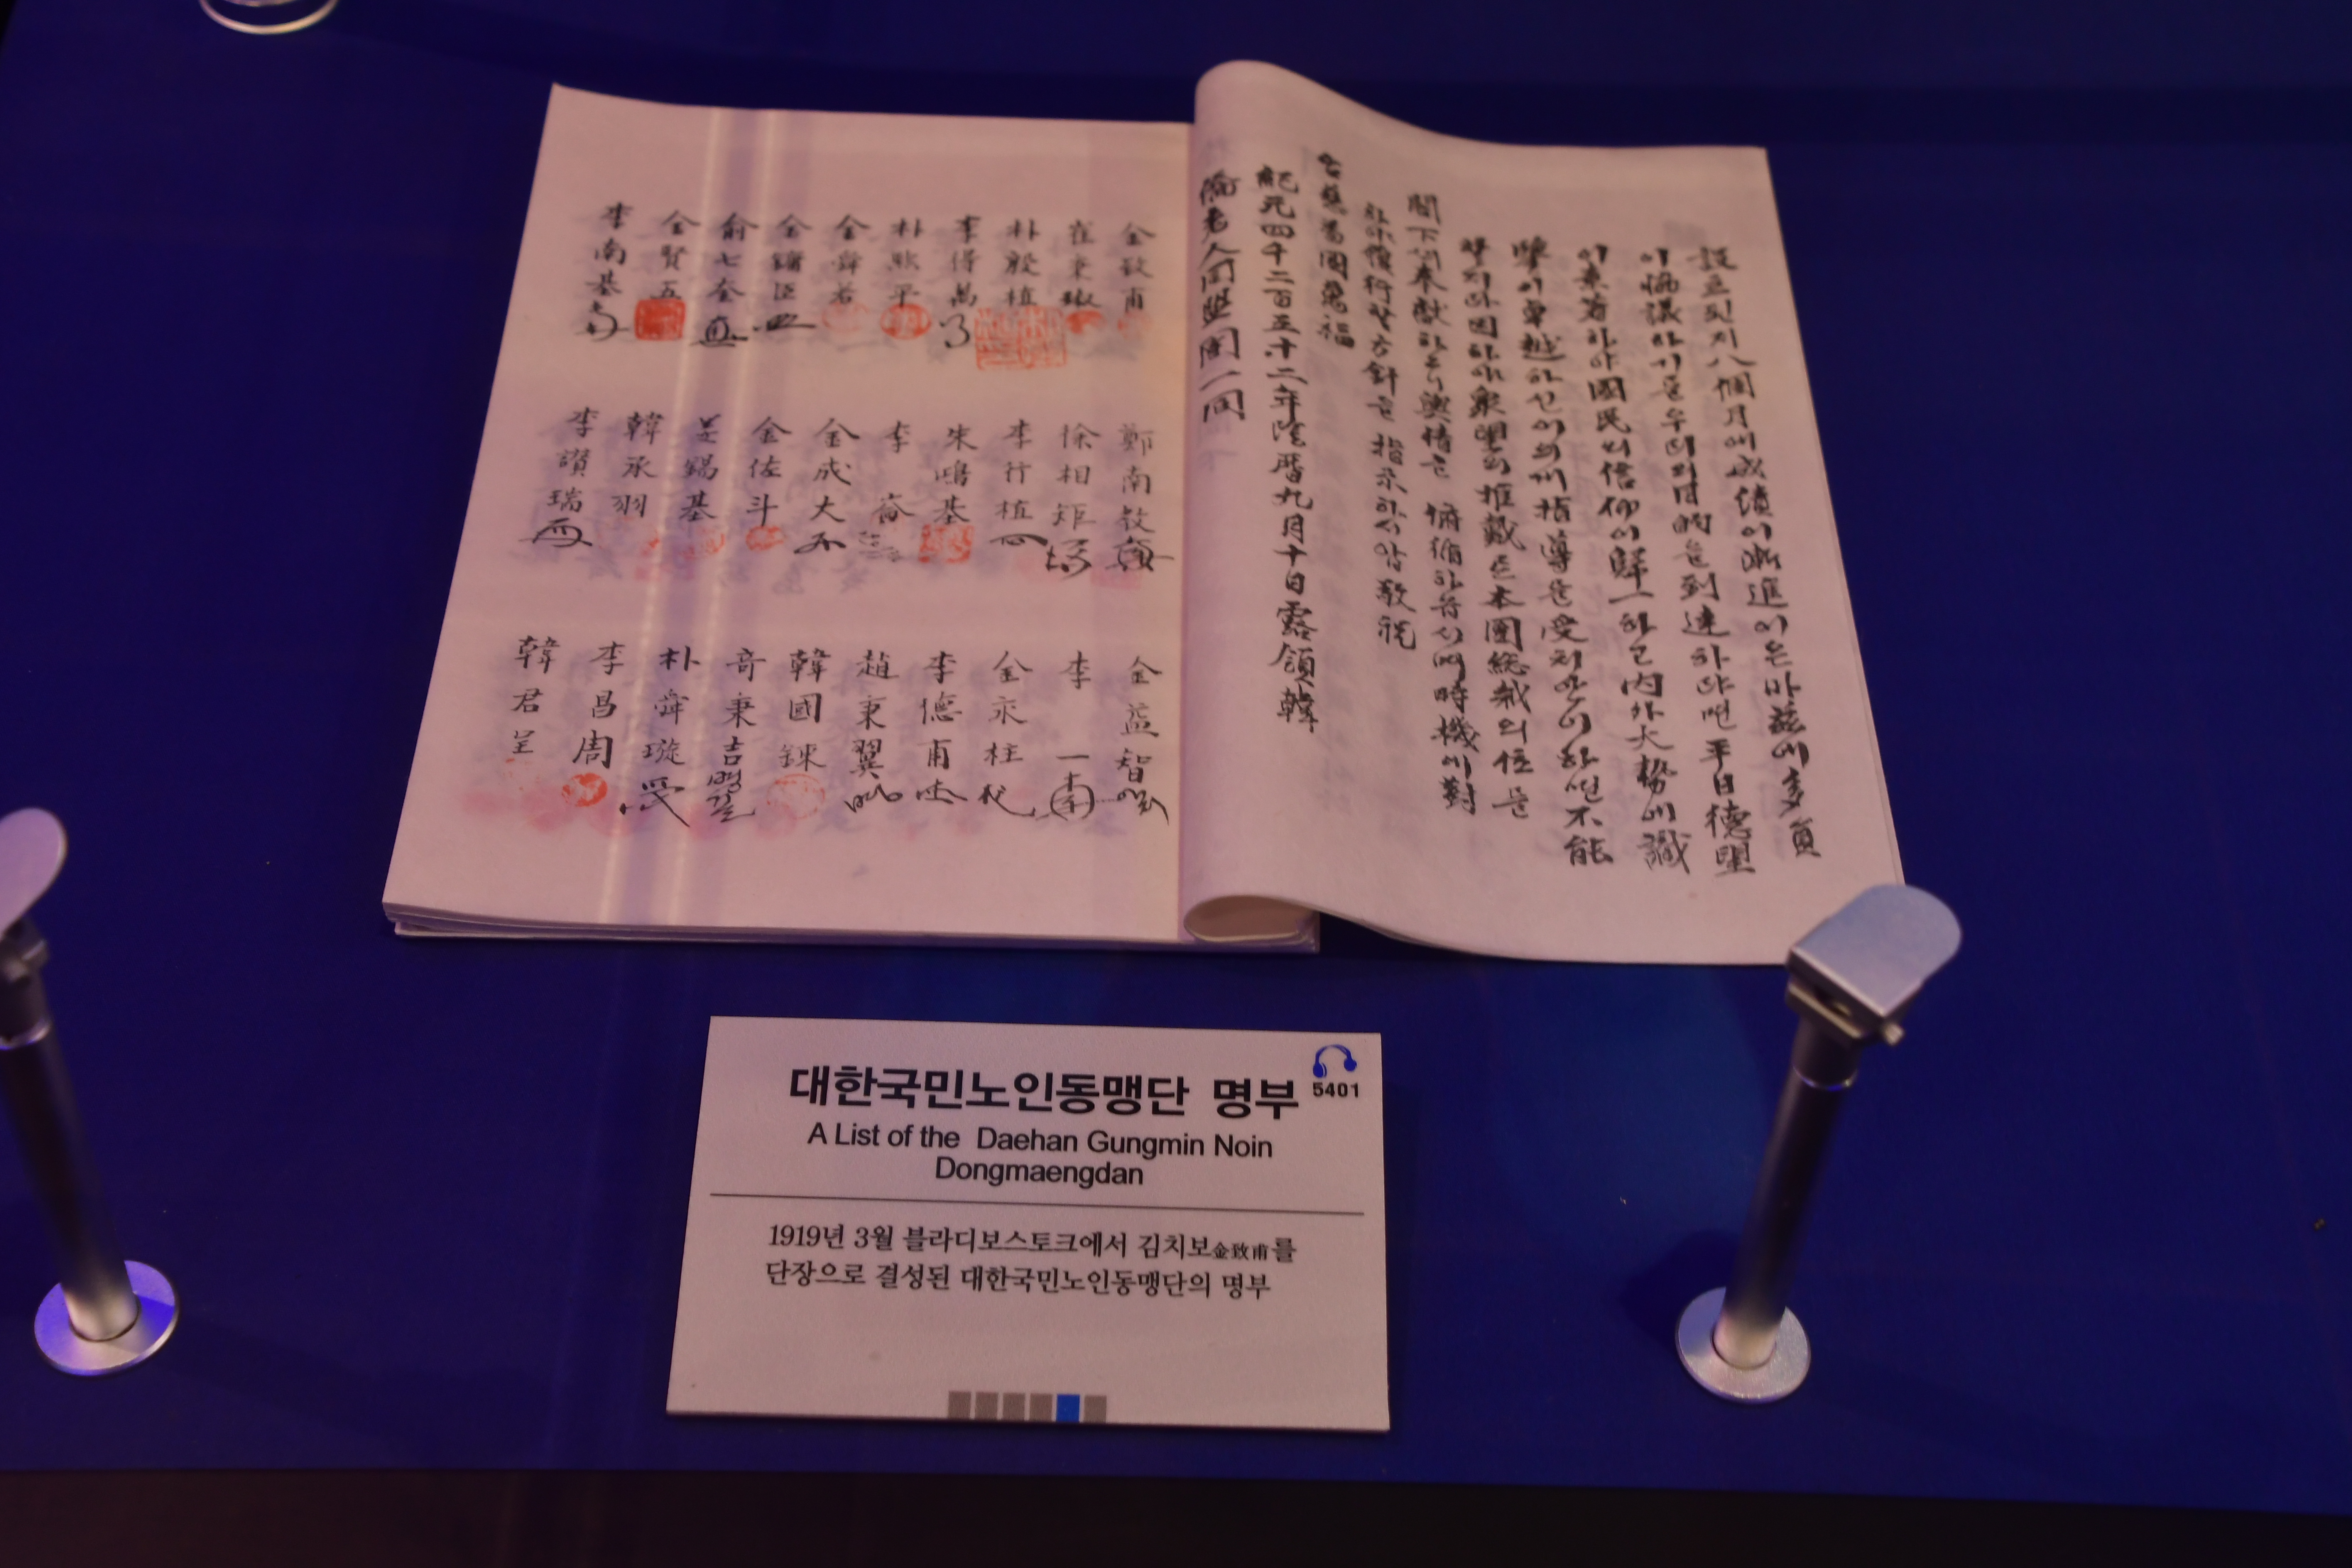 設立된지八個月에成績이漸進이온바玆에多員
이協議하기를우리의目的을到達하랴면平日德望
이素著하야國民의信仰이一하고內外大勢에識
이卓越하신이의게指導을受치안이하면不能
할지라因하야衆望의推戴로本團総裁의任을
閤下께奉獻하오니輿情을 俯循하옵시며時機에對
하야履行할方針을 指示하시압敬祝
爲國萬福
紀元四千二百五十二年陰曆九月十日露領韓
僑老人同盟團一同
金致甫
崔秉
朴殷植
李得萬
朴熙平
金舜若
金鏞臣
俞七奎
金賢五
李南基
鄭南敎
徐相矩
李行植
朱鳴基
李崙
金成大
金佐斗
吳錫基
韓承羽
李讚瑞
金益智
李一
金永柱
李德甫
趙秉翼
韓國鍊
奇秉吉
朴舜璇
李昌周
韓君呈
대한국민노인동맹단 명부
5401
A List of the Daehan Gungmin Noin
Dongmaengdan
1919년 3월 블라디보스토크에서 김치보金致甫를
단장으로 결성된 대한국민노인동맹단의 명부